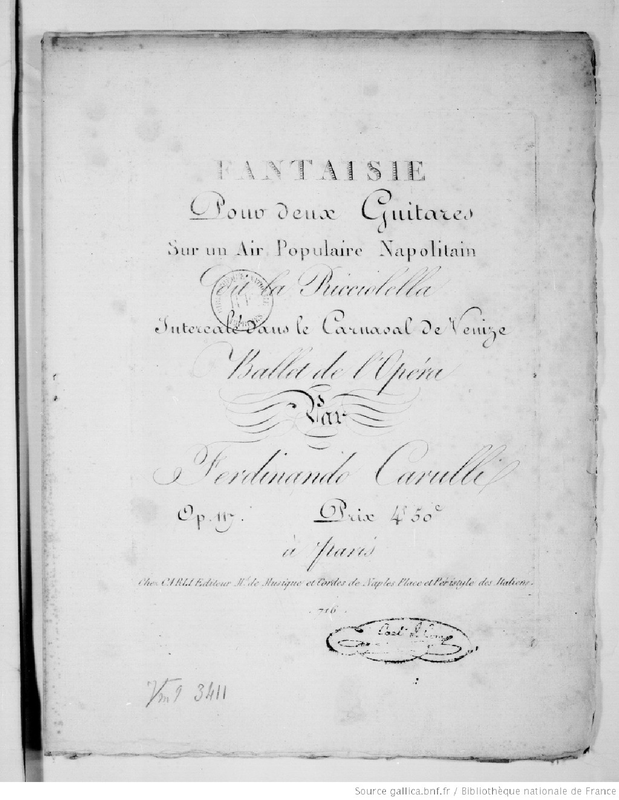 FANTAISIE
Pour deux Guitares
Sur un Air Populaire Napolitain
Dit la Ricciolella
Intercalé dans le Carnaval de Venize
Ballet de l'Opéra
Par
Ferdinando Carulli
Op. 117. Prix 4f 50c
à Paris
Chez CARLI Editeur Md. de Musique et Cordes de Naples Place et Peristyle des Italiens.
716
Vm9 3411
Source gallica.bnf.fr / Bibliothèque nationale de France